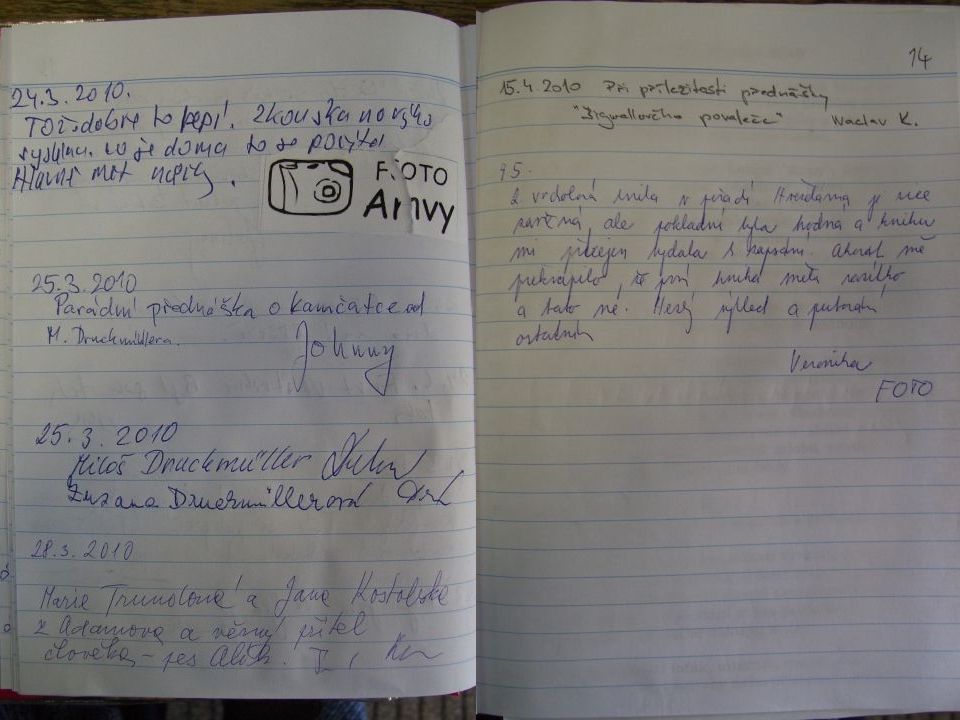 24.3.2010.
Tož dobré to pepi. Zkouška nového
systému. co je doma to se počítá
Hlavně mět nápily.
FOTO
Amvy
25.3.2010
Parádní přednáška o Kamčatce od
M. Druckmüllera.
Johnny
25.3.2010
Miloš Druckmüller
Zuzana Druckmüllerová
28.3.2010
Marie Trundová a Jana
z Adamova a věrný přítel
člověka - pes
14
15.4.2010 Při příležitosti přednášky
povaleče" Vaclav K.
9 5.
2 vrcholová kniha v pořadí. Hvězdárna je sice
zavřená, ale pokladní byla hodná a knihu
mi přesto vydala k zapsání. Akorát mě
překvapilo, že prvá kniha měla razítko
a tato ne. Hezký výhled a putování
ostatním
Veronika
FOTO